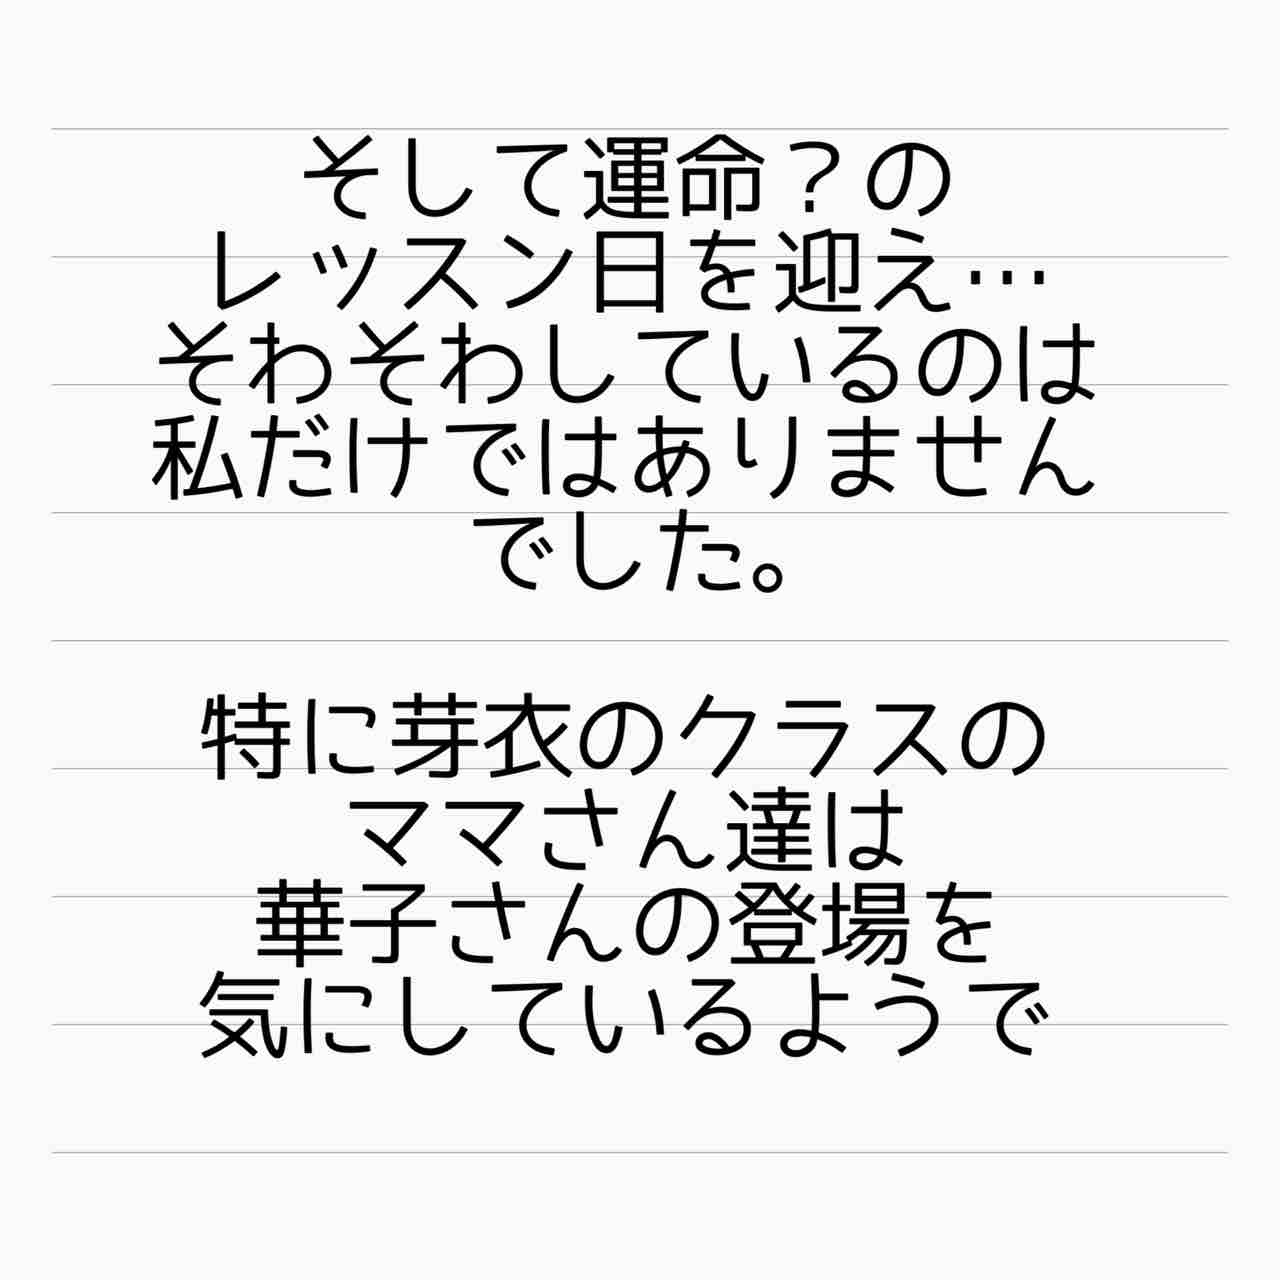 そして運命？の
レッスン日を迎え…
そわそわしているのは
私だけではありません
でした。
特に芽衣のクラスの
ママさん達は
華子さんの登場を
気にしているようで